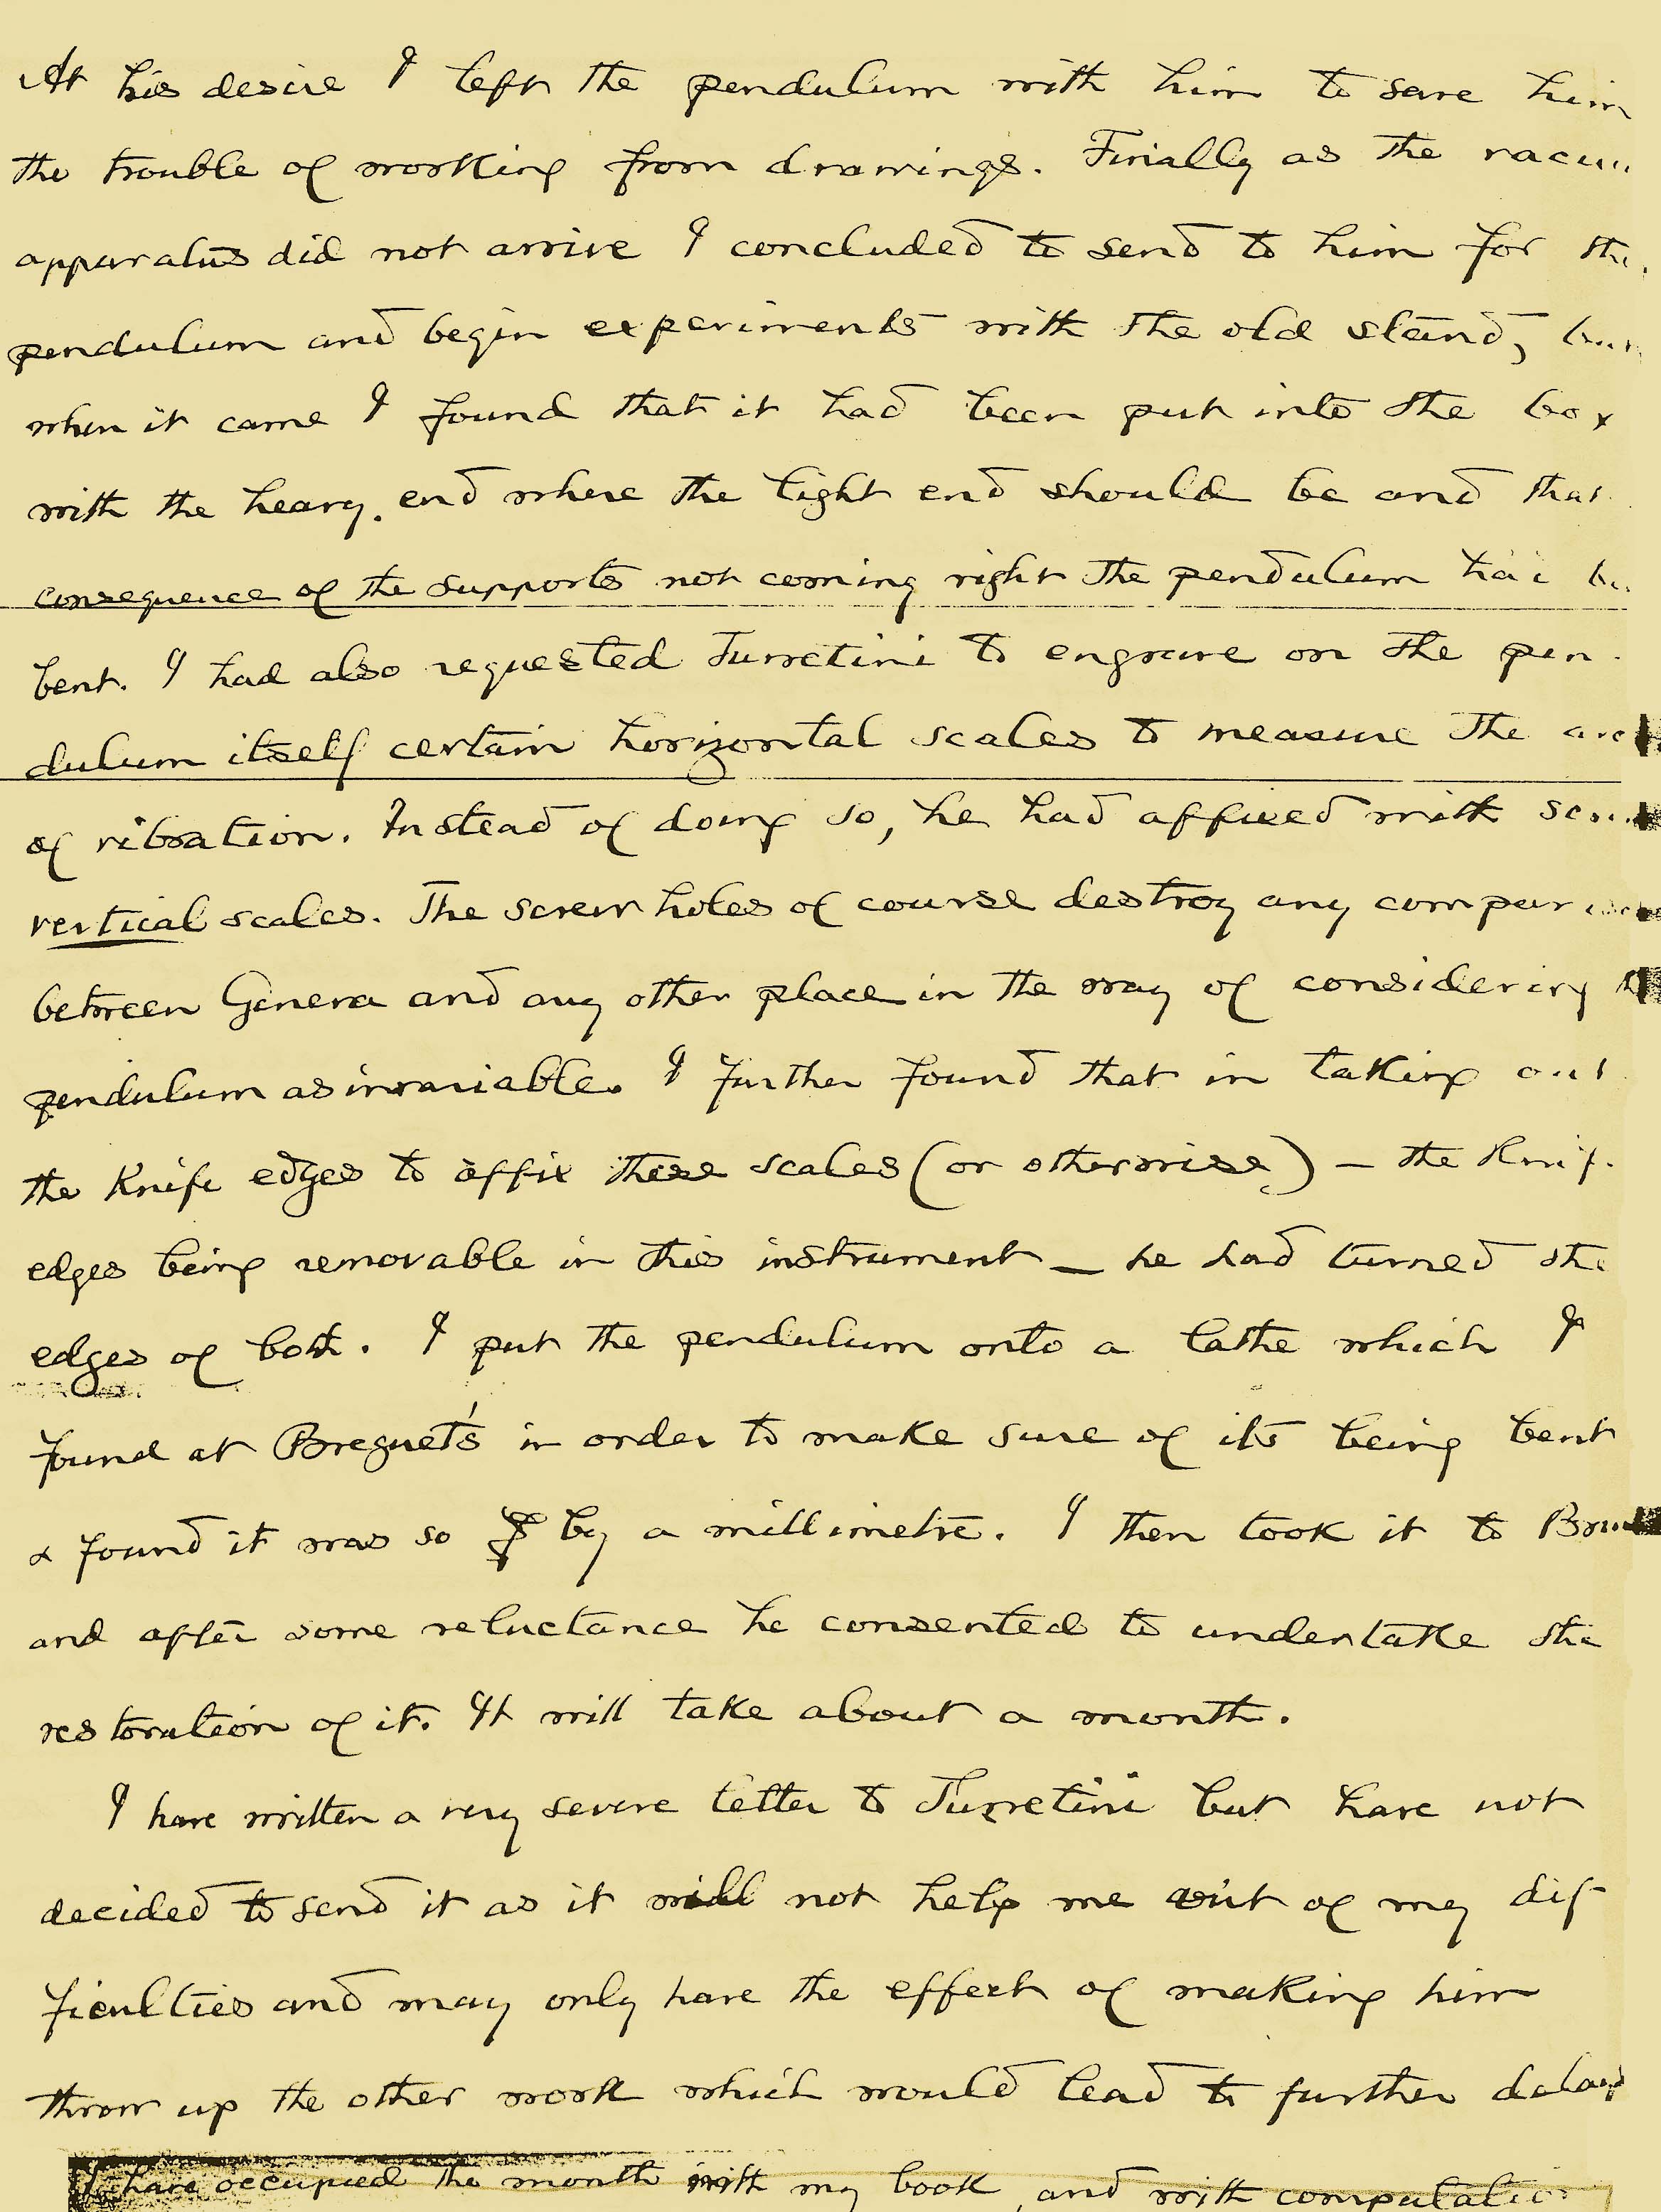 At his desire I left the pendulum with him to save him
the trouble of working from drawings. Finally as the vacuu
apparatus did not arrive I concluded to send to him for the
pendulum and begin experiments with the old stand, but
when it came I found that it had been put into the box
with the heavy end where the light end should be and that
consequence of the supports not coming right the pendulum had be
bent. I had also requested Turretini to engrave on the pen-
dulum itself certain horizontal scales to measure the arc
of vibration. Instead of doing so, he had affixed with scr
vertical scales. The screw holes of course destroy any comparison
between Geneva and any other place in the way of considering
pendulum as invariable. I further found that in taking out
the knife edges to affix these scales (or otherwise) – the knif
edges being removable in this instrument – he had turned the
edges of both. I put the pendulum onto a lathe which I
found at Breguet's in order to make sure of its being bent
& found it was so by a millimetre. I then took it to
and after some reluctance he consented to undertake the
restoration of it. It will take about a month.
I have written a very severe letter to Turretini but have not
decided to send it as it will not help me out of my dif
ficulties and may only have the effect of making him
throw up the other work which would lead to further delay
I have occupied the month with my book, and with computatio